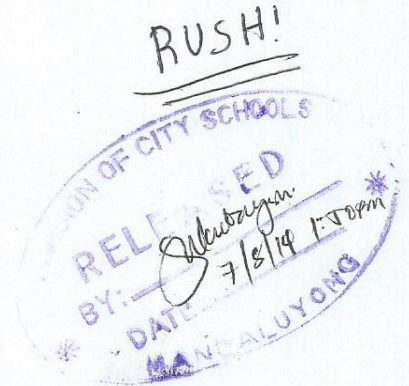 RUSH!
DIVISION OF CITY SCHOOLS
RELEASED
BY:
7/8/14 1:50pm
DATE
MANDALUYONG